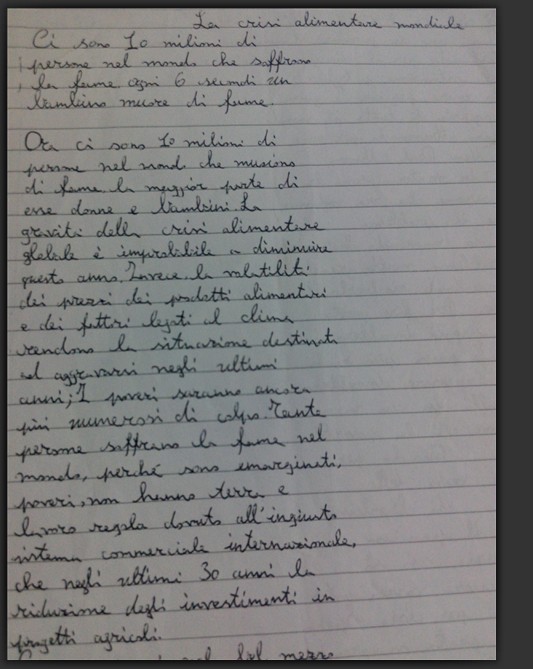 La crisi alimentare mondiale
Ci sono 10 milioni di
persone nel mondo che soffrono
la fame ogni 6 secondi un
bambino muore di fame.
Ora ci sono 10 milioni di
persone nel mondo che muoiono
di fame la maggior parte di
esse donne e bambini. La
gravità della crisi alimentare
globale è improbabile a diminuire
questo anno. Invece, la volatilità
dei prezzi dei prodotti alimentari
e dei fattori legati al clima
rendono la situazione destinata
ad aggravarsi negli ultimi
anni; I poveri saranno ancora
più numerosi di colpo. Tante
persone soffrono la fame nel
mondo, perché sono emarginati,
poveri, non hanno terra e
lavoro regola dovuto all'ingiusto
sistema commerciale internazionale,
che negli ultimi 30 anni la
riduzione degli investimenti in
progetti agricoli.
mezzo